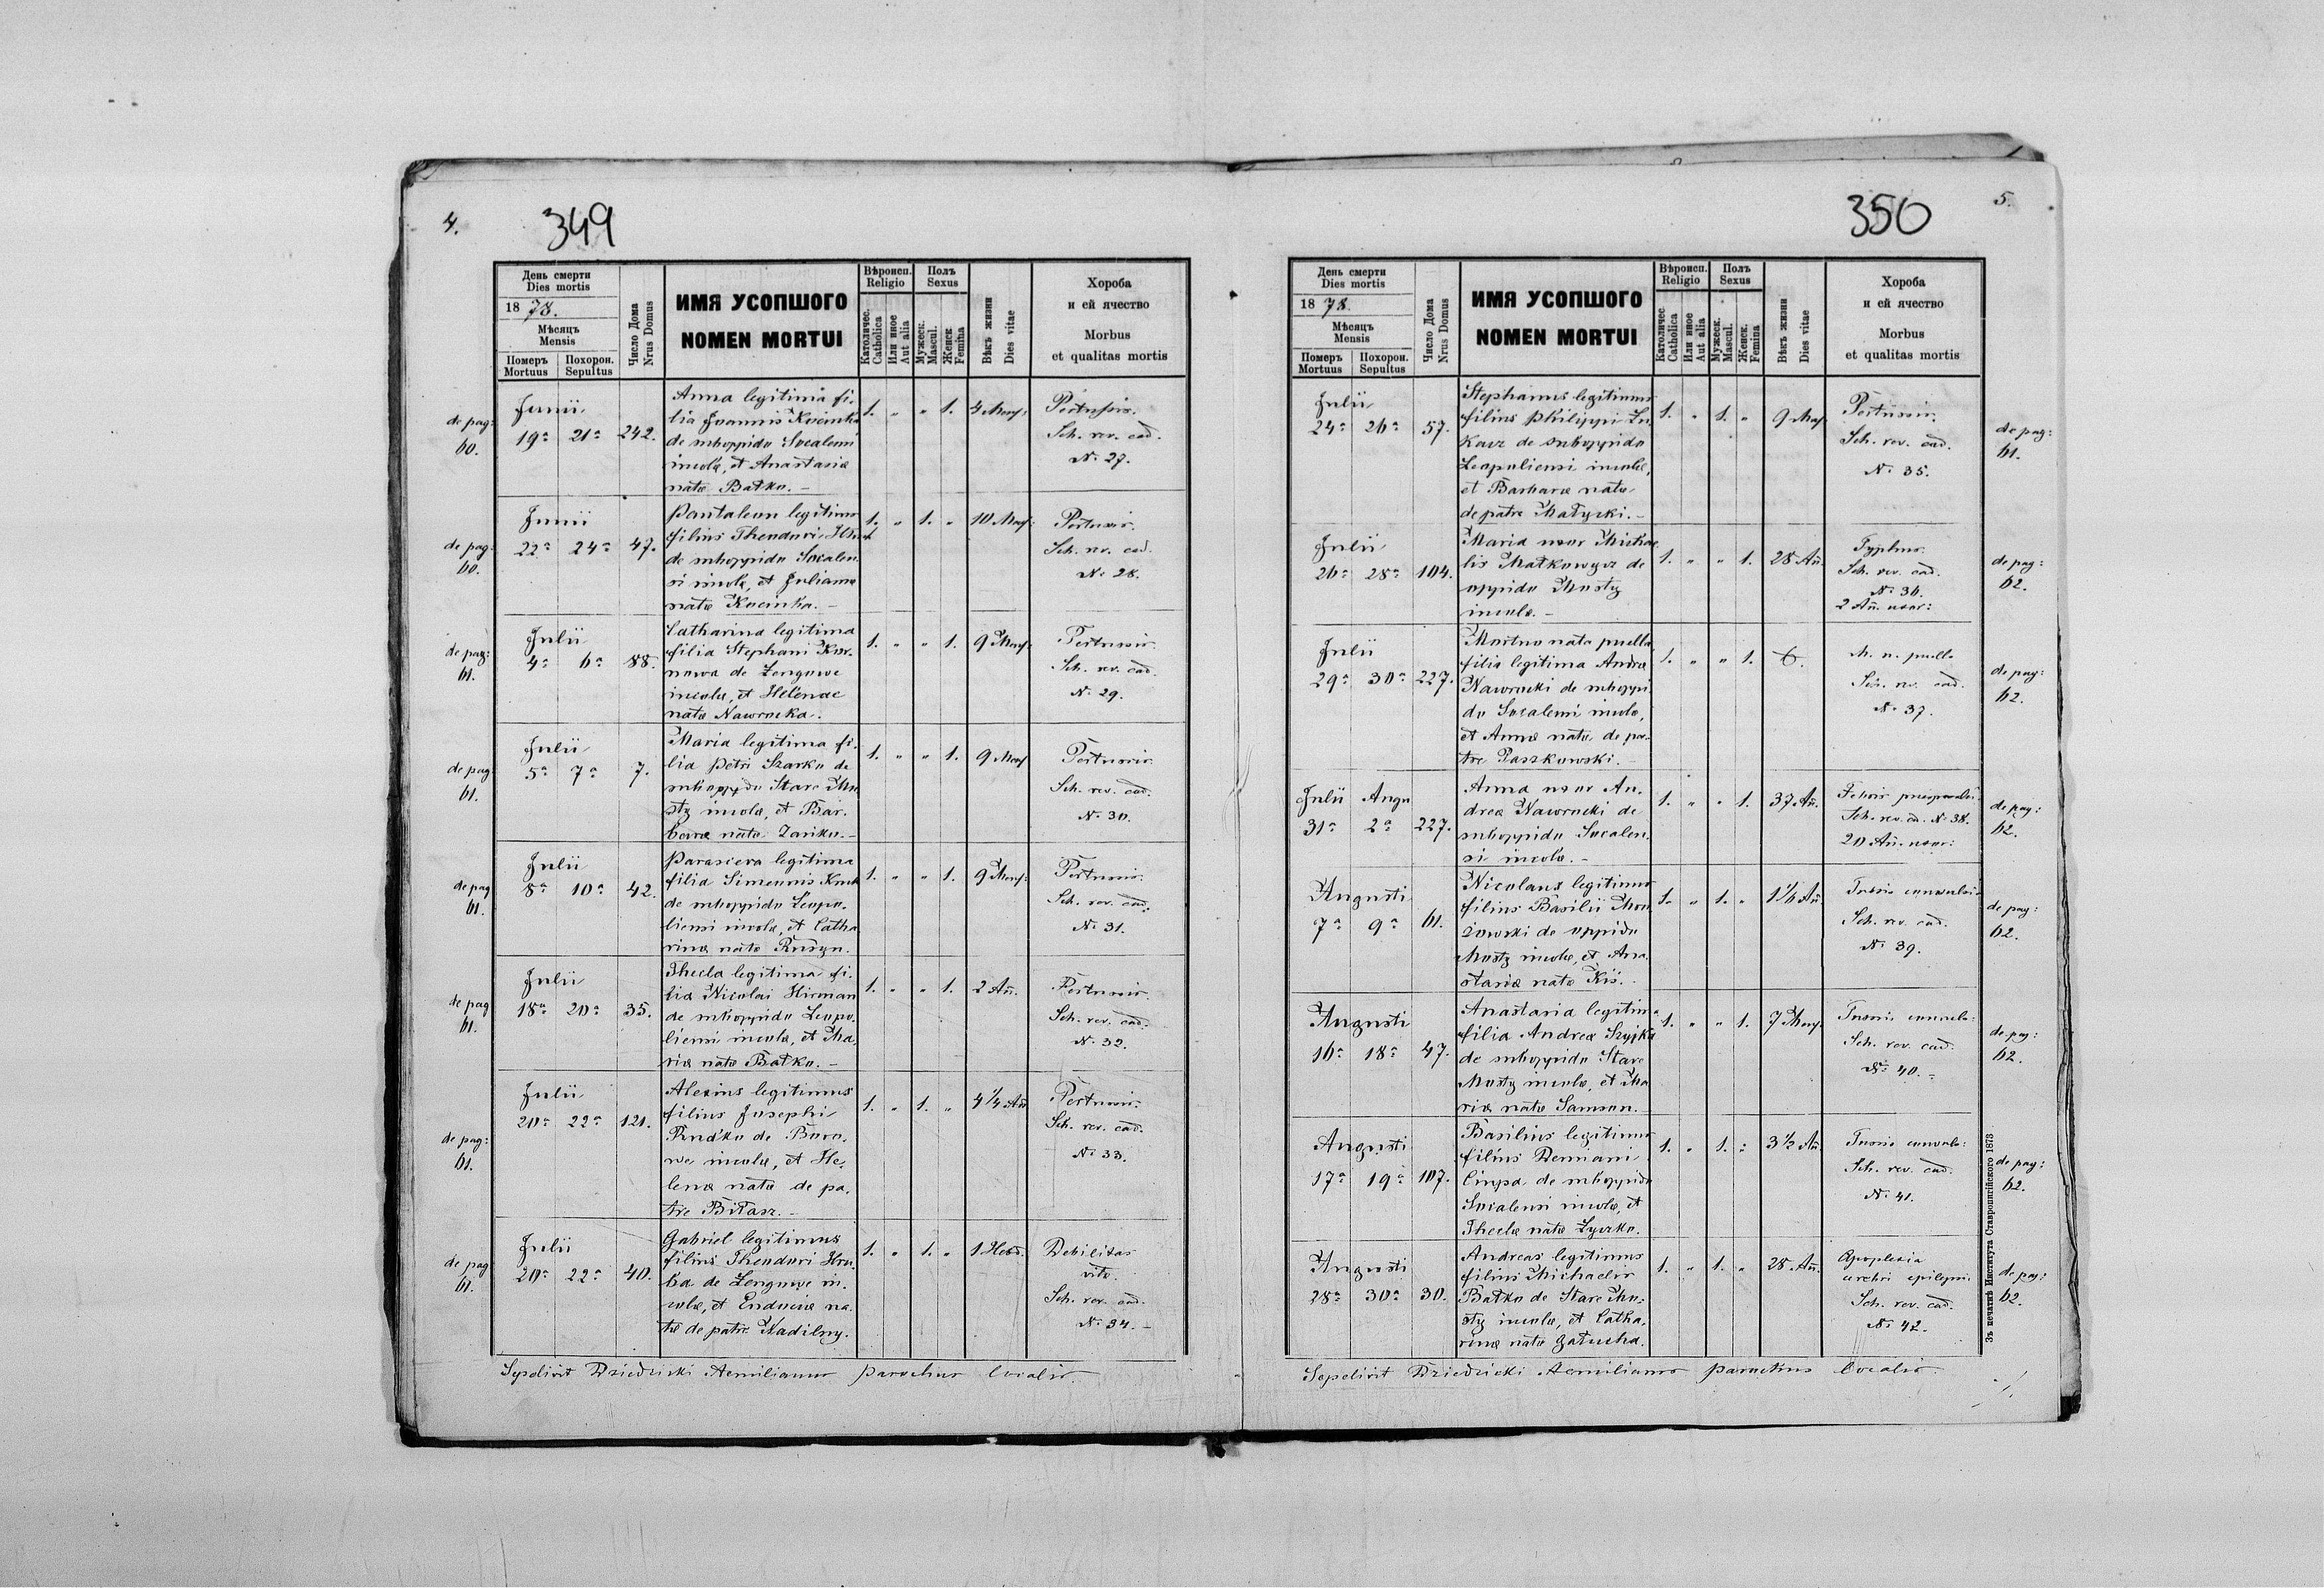 4.
349
День смерти
Dies mortis
1878.
Мѣсяцъ
Mensis
Померъ
Mortuus
Похорон.
Sepultus
Число Дома
Nrus Domus
ИМЯ УСОПШОГО
NOMEN MORTUI
Вѣроисп.
Religio
Католичес.
Catholica
Или иное
Aut alia
Полъ
Sexus
Мужеск.
Mascul.
Женск.
Femina
Вѣкъ жизни
Dies vitae
Хороба
и ей ячество
Morbus
et qualitas mortis
de pag:
60.
Junii
19a 21a 242.
Anna legitima fi-
lia Joannis
de suboppido Socalensi
incolæ, et Anastasiæ
natæ Batko. –
1. „ „ 1. 4 Mens:
Pertussis.
Sch. rev. cad.
N: 27.
de pag:
60.
Junii
22a 24a 47.
Pantaleon legitimus
filius Theodori
de suboppido Socalen
si incolæ, et Julianna
natæ Kocinka. –
1. „ 1. „ 10 Mens:
Pertussis.
Sch. rev. cad.
N: 28.
de pag:
61.
Julii
4a 6a 88.
Catharina legitima
filia Stephani Kor-
nowa de Zengowe
incolæ, et Helenae
natæ Nawrocka.
1. „ „ 1. 9 Mens:
Pertussis.
Sch. rev. cad.
N: 29.
de pag
61.
Julii
5a 7a 7.
Maria legitima fi-
lia Petri Szarko de
suboppido Stare Mo
sty incolæ, et Bar-
baræ natæ Zariko. –
1. „ „ 1. 9 Mens
Pertussis.
Sch. rev. cad.
N: 30.
de pag
61.
Julii
8a 10a 42.
Parascieva legitima
filia Simeonis
de suboppido Leopo-
liensi incolæ, et Catha
rinæ natæ Rusyn.
1. „ „ 1. 9 Mens:
Pertussis.
Sch. rev. cad.
N: 31.
de pag
61.
Julii
18a 20a 35.
Thecla legitima fi-
lia Nicolai Hirman
de suboppido Leopo-
liensi incolæ, et Ma-
riæ natæ Batko. –
1. „ „ 1. 2 An̄.
Pertussis.
Sch. rev. cad.
N: 32.
de pag:
61.
Julii
20a 22a 121.
Alexius legitimus
filius Josephi
Rudko de Boro-
we incolæ, et He-
lenæ natæ de pa-
tre Bitasz. –
1. „ 1. „ 4 1/4 An̄
Pertussis.
Sch. rev. cad.
N: 33.
de pag
61.
Julii
20a 22a 40.
Gabriel legitimus
filius Theodori Hru-
ba de Zengowe in-
colæ, et Eudociæ na-
tæ de patre Nadilny.
1. „ 1. „ 1 Hebd.
Debilitas
vitæ.
Sch. rev. cad.
N: 34. –
Sepelivit Dziedzicki Aemilianus parochus localis.
350
5.
День смерти
Dies mortis
1878.
Мѣсяцъ
Mensis
Померъ
Mortuus
Похорон.
Sepultus
Число Дома
Nrus Domus
ИМЯ УСОПШОГО
NOMEN MORTUI
Вѣроисп.
Religio
Католичес
Catholica
Или иное
Aut alia
Полъ
Sexus
Мужеск.
Mascul.
Женск.
Femina
Вѣкъ жизни
Dies vitae
Хороба
и ей ячество
Morbus
et qualitas mortis
Julii
24a 26a 57.
Stephanus legitimus
filius Philippi Lu-
kacz de suboppido
Leopoliensi incolæ,
et Barbaræ natæ
de patre Matycki. –
1. „ 1. „ 9 Mens
Pertussis.
Sch. rev. cad.
N: 35.
de pag:
61.
Julii
26a 28a 104.
Maria uxor Michae
lis Matkowycz de
oppido Mosty
incolæ. –
1. „ „ 1. 28 An̄.
Typhus.
Sch. rev. cad.
N: 36.
2 An̄. uxor:
de pag:
62.
Julii
29a 30a 227.
Mortuo nata puella
filia legitima Andreæ
Nawrocki de suboppi-
do Socalensi incolæ,
et Annæ natæ de pa-
tre Paszkowski. –
1. „ „ 1.
M. n. puella
Sch. rev. cad.
N: 37.
de pag:
62.
Julii Augu
31a 2a 227.
Anna uxor An-
dreæ Nawrocki de
suboppido Socalen-
si incolæ. –
1. „ „ 1. 37 An̄.
Febris puerperalis.
Sch. rev. ca. N: 38.
20 An̄. uxor:
de pag:
62.
Augusti
7a 9a 61.
Nicolaus legitimus
filius Basilii
de oppido
Mosty incolæ, et Ana-
stasiæ natæ Kiś.
1. „ 1. „ 1 1/6 An̄.
Tussis convulsi:
Sch. rev. cad.
N: 39.
de pag:
62.
Augusti
16a 18a 47.
Anastasia legitima
filia Andreæ Szyjka
de suboppido Stare
Mosty incolæ, et Ma
riæ natæ Samson. –
1. „ „ 1. 7 Mens.
Tussis convuls:
Sch. rev. cad.
N: 40. –
de pag:
62.
Augusti
17a 19a 107.
Basilius legitimus
filius Demiani
Ciupa de suboppido
Socalensi incolæ, et
Theclæ natæ Łyczko.
1. „ 1. „ 3 1/2 An̄.
Tussis convuls:
Sch. rev. cad.
N: 41.
de pag:
62.
Augusti
28a 30a 30.
Andreas legitimus
filius Michaelis
Batko de Stare Mo-
sty incolæ, et Catha-
rinæ natæ Hatucha.
1. „ 1. „ 28 An̄.
Apoplexia
cerebri epileps:
Sch. rev. cad.
N: 42.
de pag:
62.
Зъ печатнѣ Института Ставропигійского 1873
Sepelivit Dziedzicki Aemilianus parochus localis.